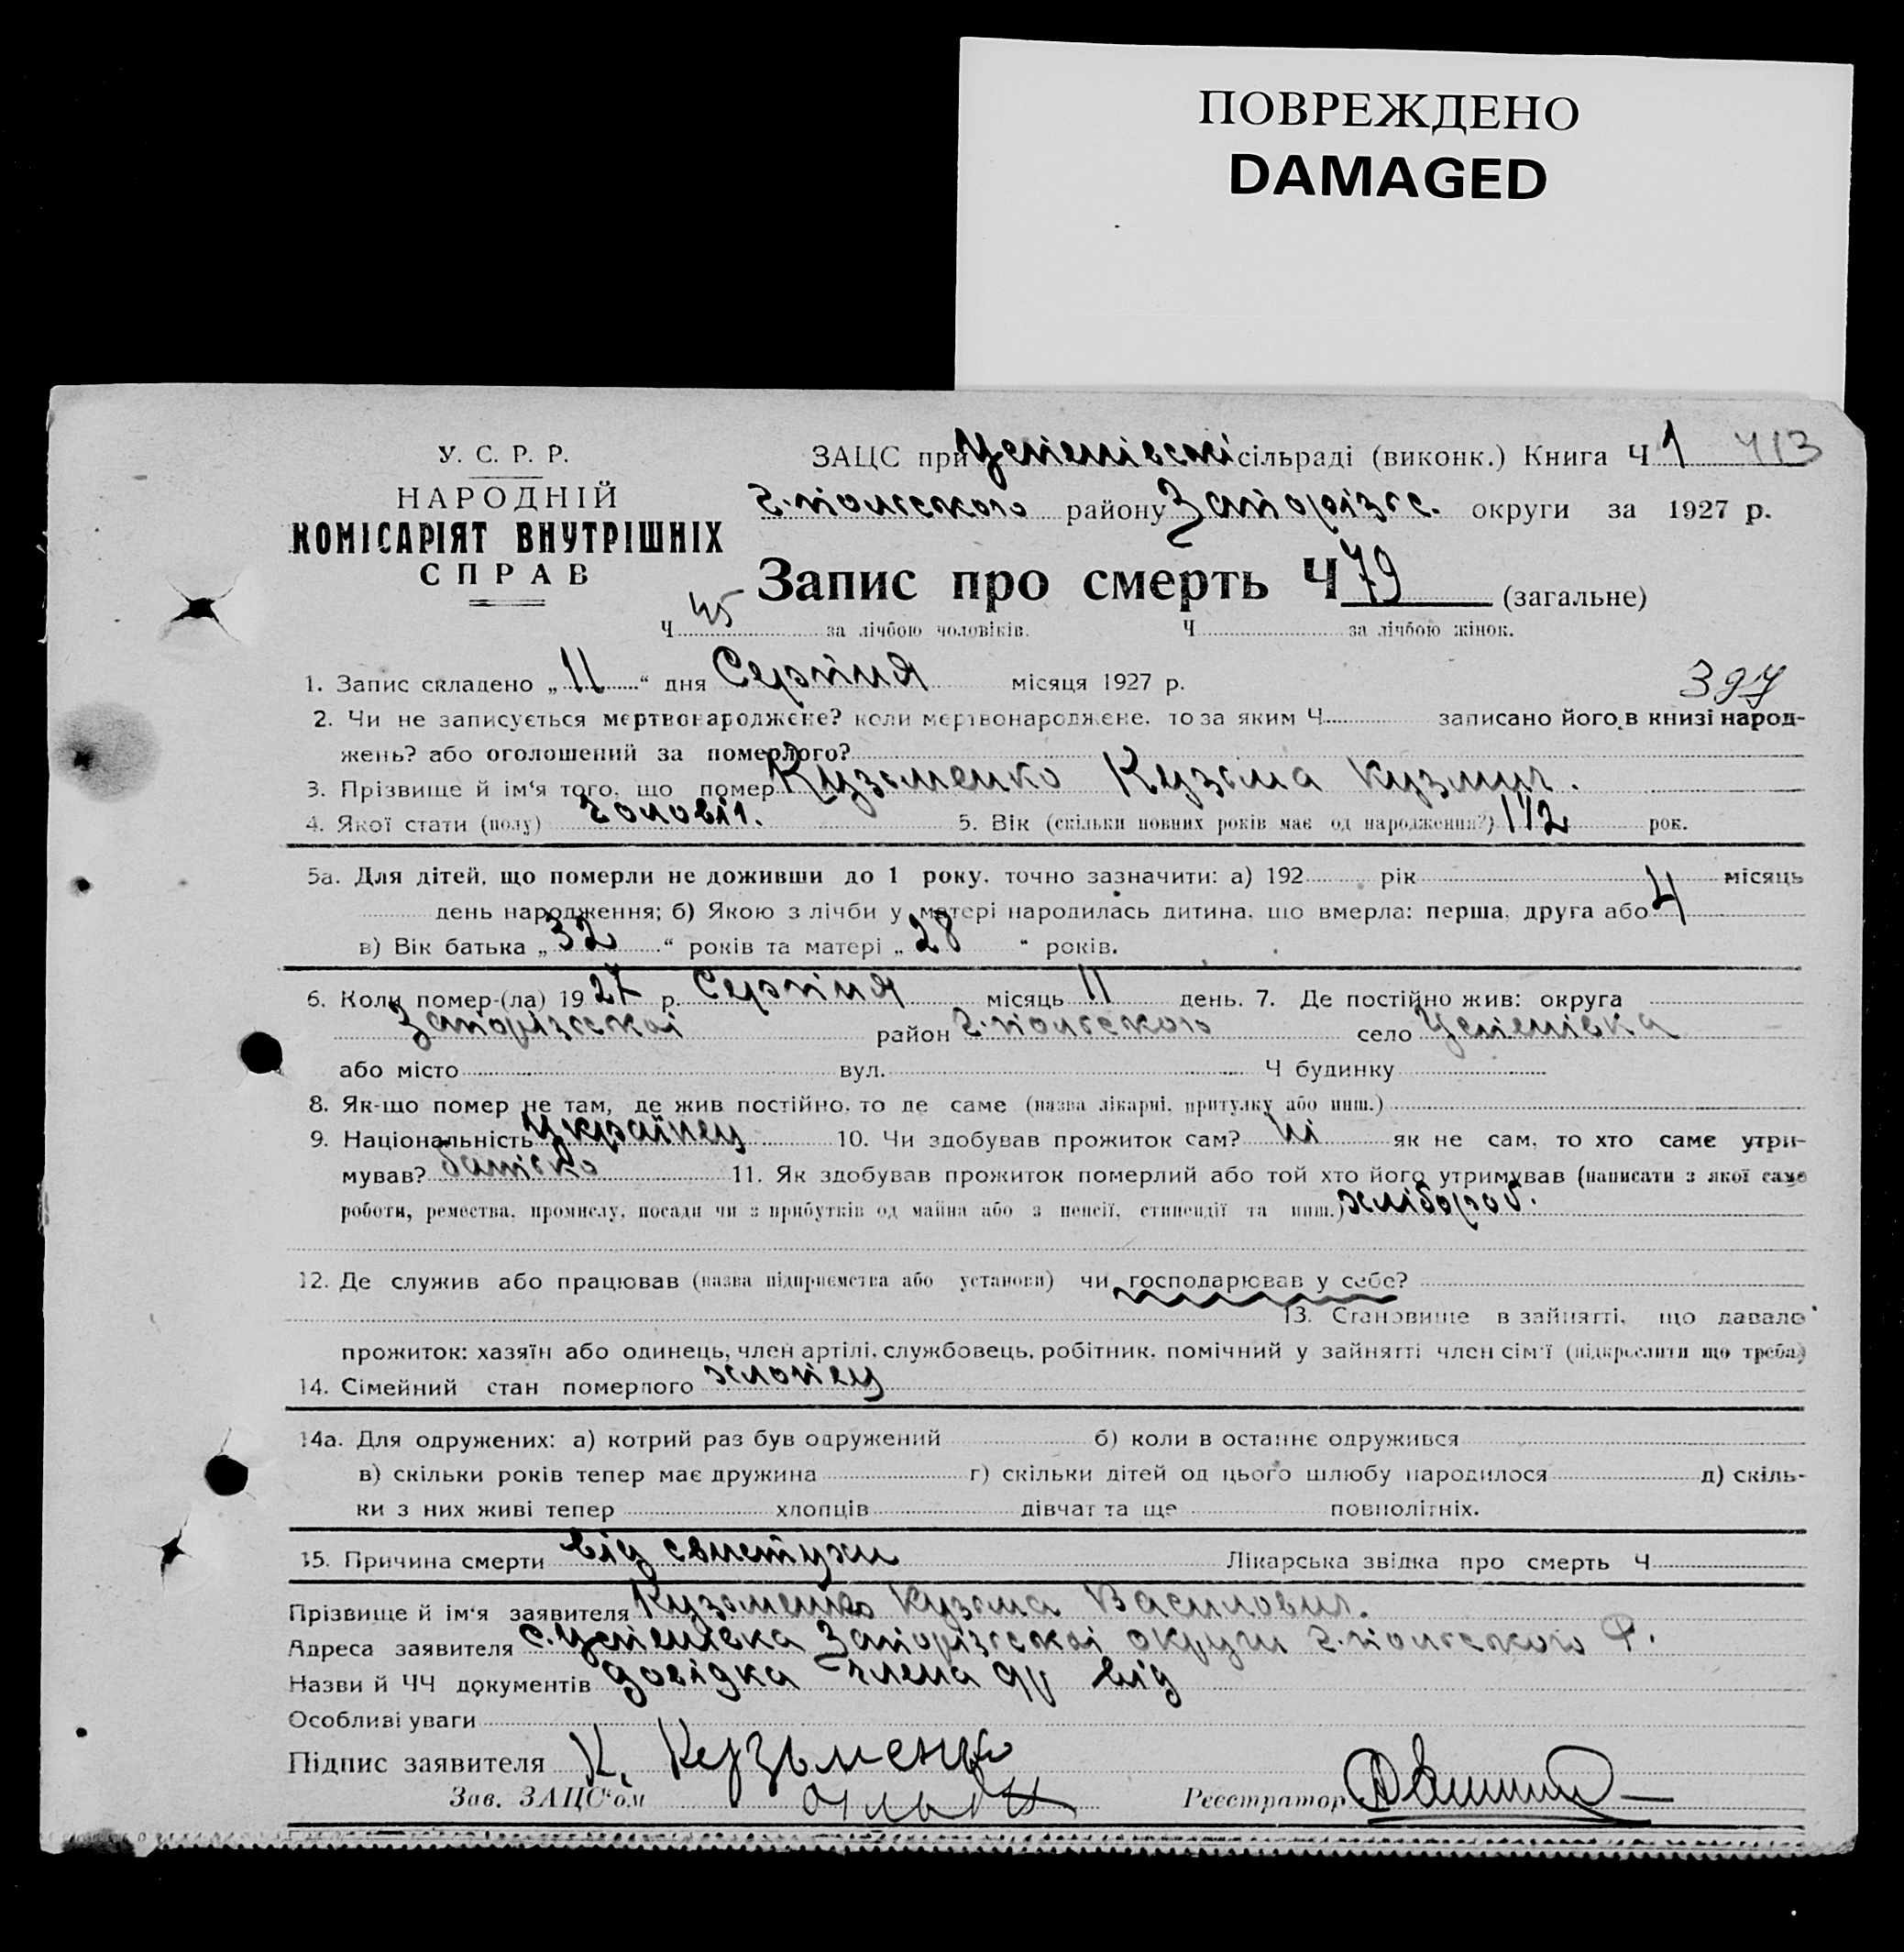 ПОВРЕЖДЕНО
DAMAGED
У. С. Р. Р.
НАРОДНІЙ
КОМІСАРІЯТ ВНУТРІШНІХ
СПРАВ
ЗАЦС при Успенівскі сільраді (виконк.) Книга Ч 1 413
г.польського району Запорізьс. округи за 1927 р.
Запис про смерть Ч 79 (загальне)
Ч 45 за лічбою чоловіків. Ч за лічбою жінок.
1. Запис складено „ 11 “ дня Серпня місяця 1927 р. 397
2. Чи не записується мертвонароджене? коли мертвонароджене, то за яким Ч записано його в книзі народ-
жень? або оголошений за померлого?
3. Прізвище й ім'я того, що помер Кузьменко Кузьма Кузмич.
4. Якої стати (полу) чоловіч. 5. Вік (скільки повних років має од народження?) 1 1/2 рок.
5а. Для дітей, що померли не доживши до 1 року, точно зазначити: а) 192 рік місяць
день народження; б) Якою з лічби у матері народилась дитина, що вмерла: перша, друга або 4
в) Вік батька „ 32 “ років та матері „ 28 “ років.
6. Коли помер-(ла) 19 27 р. Серпня місяць 11 день. 7. Де постійно жив: округа
Запорізьскоі район г.польського село Успенівка
або місто вул. Ч будинку
8. Як-що помер не там, де жив постійно, то де саме (назва лікарні, притулку або инш.)
9. Національність Українец 10. Чи здобував прожиток сам? ні як не сам, то хто саме утри-
мував? батько 11. Як здобував прожиток померлий або той хто його утримував (написати з якої саме
роботи, ремества, промислу, посади чи з прибутків од майна або з пенсії, стипендії та инш.) хлібороб.
12. Де служив або працював (назва підприємства або установи) чи господарював у себе?
13. Становище в зайнятті, що давало
прожиток: хазяїн або одинець, член артілі, службовець, робітник, помічний у зайнятті член сім'ї (підкреслити що треба)
14. Сімейний стан померлого хлопец
14а. Для одружених: а) котрий раз був одружений б) коли в останнє одружився
в) скільки років тепер має дружина г) скільки дітей од цього шлюбу народилося д) скіль-
ки з них живі тепер хлопців дівчат та ще повнолітніх.
15. Причина смерти від свистухи Лікарська звідка про смерть Ч
Прізвище й ім'я заявителя Кузьменко Кузьма Василович.
Адреса заявителя с. Успенівка Запорізьскоі округи г.польського Р.
Назви й ЧЧ документів довідка члена с/р від
Особливі уваги
Підпис заявителя К. Кузьменко
Зав. ЗАЦС'ом
Реєстратор